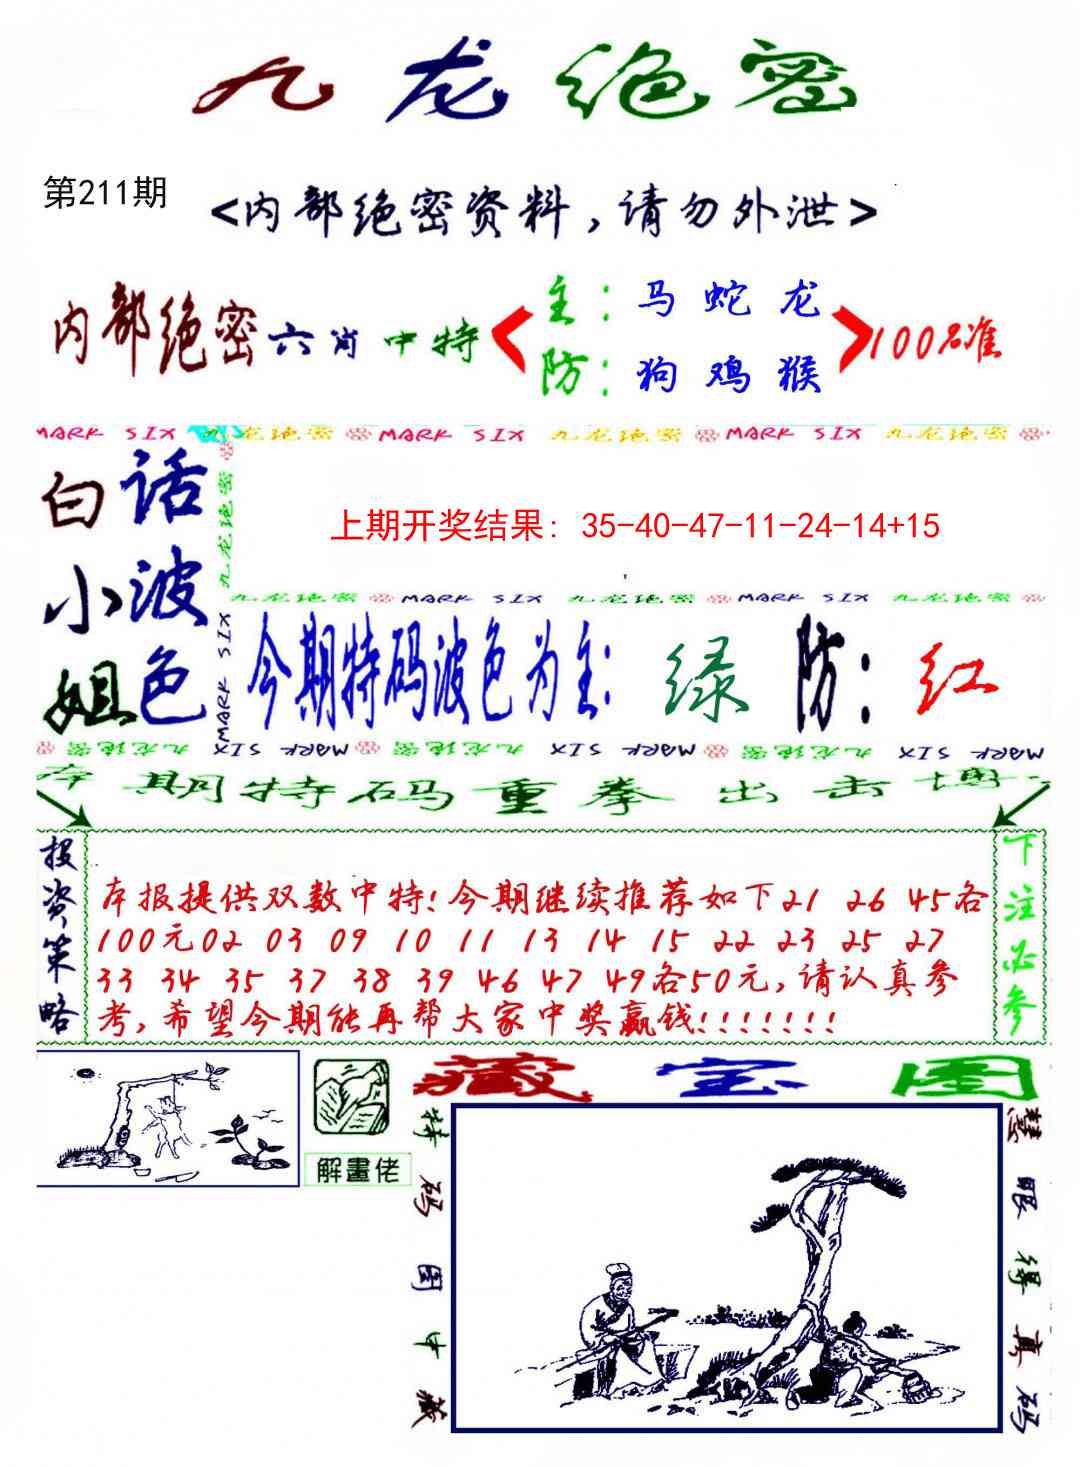 九龙绝密
第211期
<内部绝密资料,请勿外泄>
内部绝密六肖中特
主:马蛇龙
防:狗鸡猴
100%准
MARK SIX 九龙绝密 MARK SIX 九龙绝密 MARK SIX 九龙绝密
九龙绝密
MARK SIX
白小姐
话波色
上期开奖结果: 35-40-47-11-24-14+15
九龙绝密 MARK SIX 九龙绝密 MARK SIX 九龙绝密
今期特码波色为主: 绿 防: 红
九龙绝密 MARK SIX 九龙绝密 MARK SIX 九龙绝密 MARK SIX
本期特码重拳出击博
投资策略
本报提供双数中特!今期继续推荐如下21 26 45各
100元02 03 09 10 11 13 14 15 22 23 25 27
33 34 35 37 38 39 46 47 49各50元,请认真参
考,希望今期能再帮大家中奖赢钱!!!!!!!
下注必参
解畫佬
藏宝图
特码图中藏
慧眼得真码